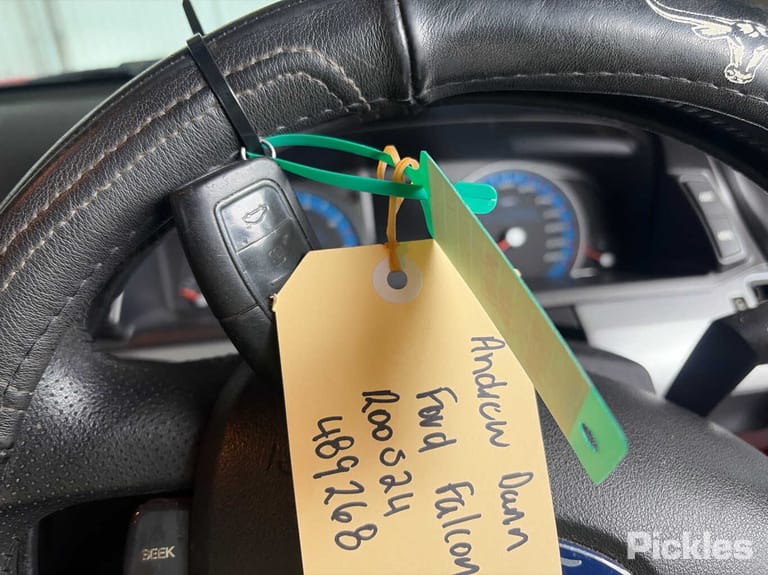 Andrew Dann
Ford Falcon
R00S24
489268
SEEK
Pickles